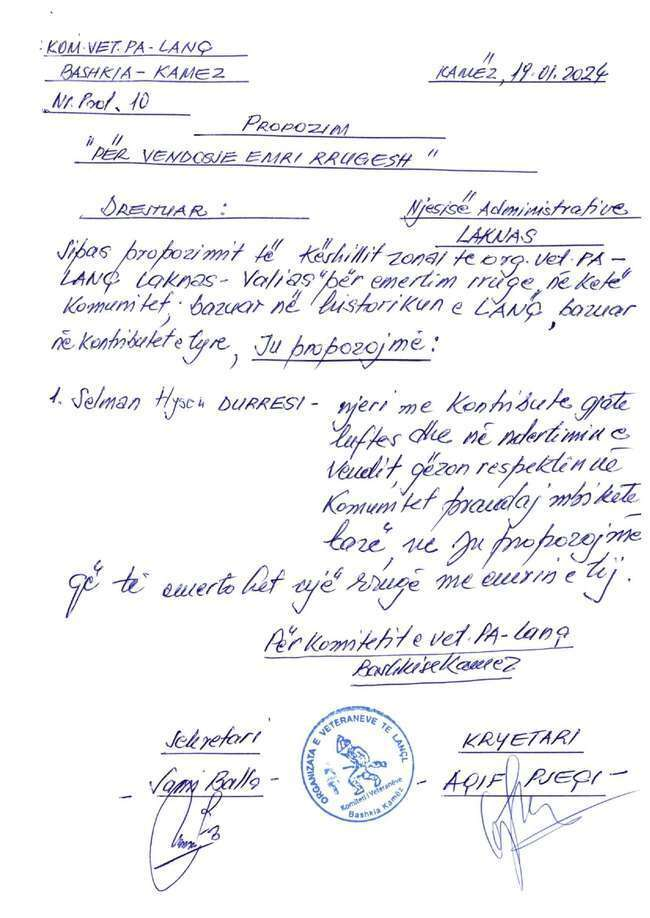 KOM.VET.PA-LANÇ
BASHKIA-KAMEZ
KAMËZ, 19.01.2024
Nr. Prot. 10
PROPOZIM
"PËR VENDOSJE EMRI RRUGESH"
DREJTUAR:
Njësisë Administrative
LAKNAS
Sipas propozimit të Këshillit zonal te org. vet. PA-
LANÇ Laknas-Valias "për emertim rruge, në ketë
Komunitet, bazuar në historikun e LANÇ, bazuar
në kontributet e tyre, Ju propozojmë:
1. Selman Hysen DURRESI - njeri me Kontribute gjate
luftes dhe në ndertimin e
Vendit, gëzon respektin në
Komunitet prandaj mbi kete
bazë, ne Ju propozojmë
që të emertohet një rrugë me emrin e tij.
Për Komitetit e vet. PA-Lanç
Bashkise Kamez
Sekretari
KRYETARI
- Sami Balla -
- AQIF PJEÇI -
ORGANIZATA E VETERANEVE TE LANÇL
Komiteti i Veteranëve
Bashkia Kamëz